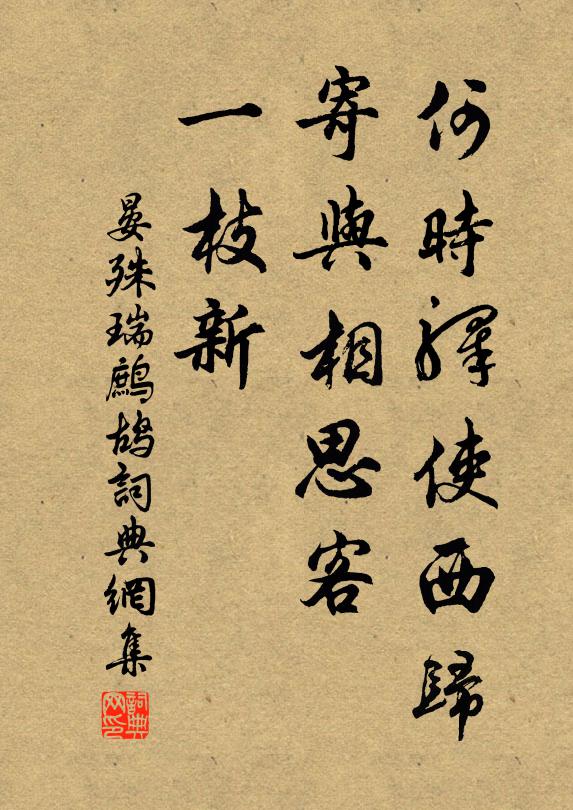 何時驛使西歸
寄與相思客
一枝新
晏殊瑞鷓鴣詞典網集
詞典
网印